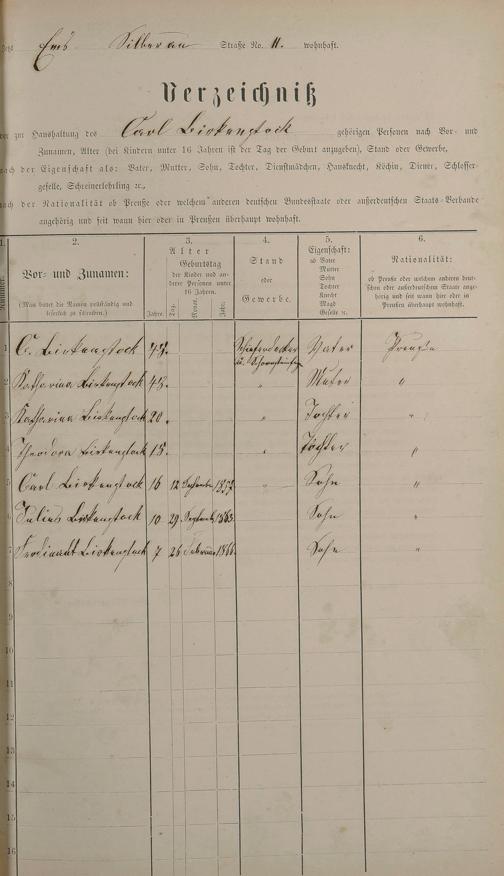 Ems Silberau Straße No. 11. wohnhaft.
Verzeichniß
der zur Haushaltung des Carl Birkenstock gehörigen Personen nach Vor- und
Zunamen, Alter (bei Kindern unter 16 Jahren ist der Tag der Geburt anzugeben), Stand oder Gewerbe,
nach der Eigenschaft als: Vater, Mutter, Sohn, Tochter, Dienstmädchen, Hausknecht, Köchin, Diener, Schlosser-
geselle, Schreinerlehrling ꝛc.,
nach der Nationalität ob Preuße oder welchem anderen deutschen Bundesstaate oder außerdeutschen Staats-Verbande
angehörig und seit wann hier oder in Preußen überhaupt wohnhaft.
1. 2. 3. 4. 5. 6.
Nummer.
Vor- und Zunamen:
(Man bittet die Namen vollständig und
leserlich zu schreiben.)
Alter
Geburtstag
der Kinder und an-
derer Personen unter
16 Jahren.
Jahre. Tag. Monat. Jahr.
Stand
oder
Gewerbe.
Eigenschaft:
als Vater
Mutter
Sohn
Tochter
Knecht
Magd
Geselle ꝛc.
Nationalität:
ob Preuße oder welchem anderen deut-
schen oder außerdeutschem Staate ange-
hörig und seit wann hier oder in
Preußen überhaupt wohnhaft.
1 C. Birkenstock 47. Schieferdecker Vater Preuße
u. Schornsteinfeger
2 Katharina Birkenstock 45. " Muter "
3 Katharina Birkenstock 20. " Tochter "
4 Theodora Birkenstock 18. " Tochter "
5 Carl Birkenstock 16 12 1857. " Sohn "
6 Julius Birkenstock 10 29 September 1863. Sohn "
7 Ferdinandt Birkenstock 7 26 Februar 1866. Sohn "
8
9
10
11
12
13
14
15
16